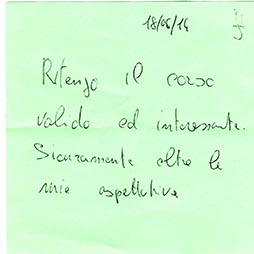 18/06/14
Ritengo il corso
valido ed interessante.
Sicuramente oltre le
mie aspettative